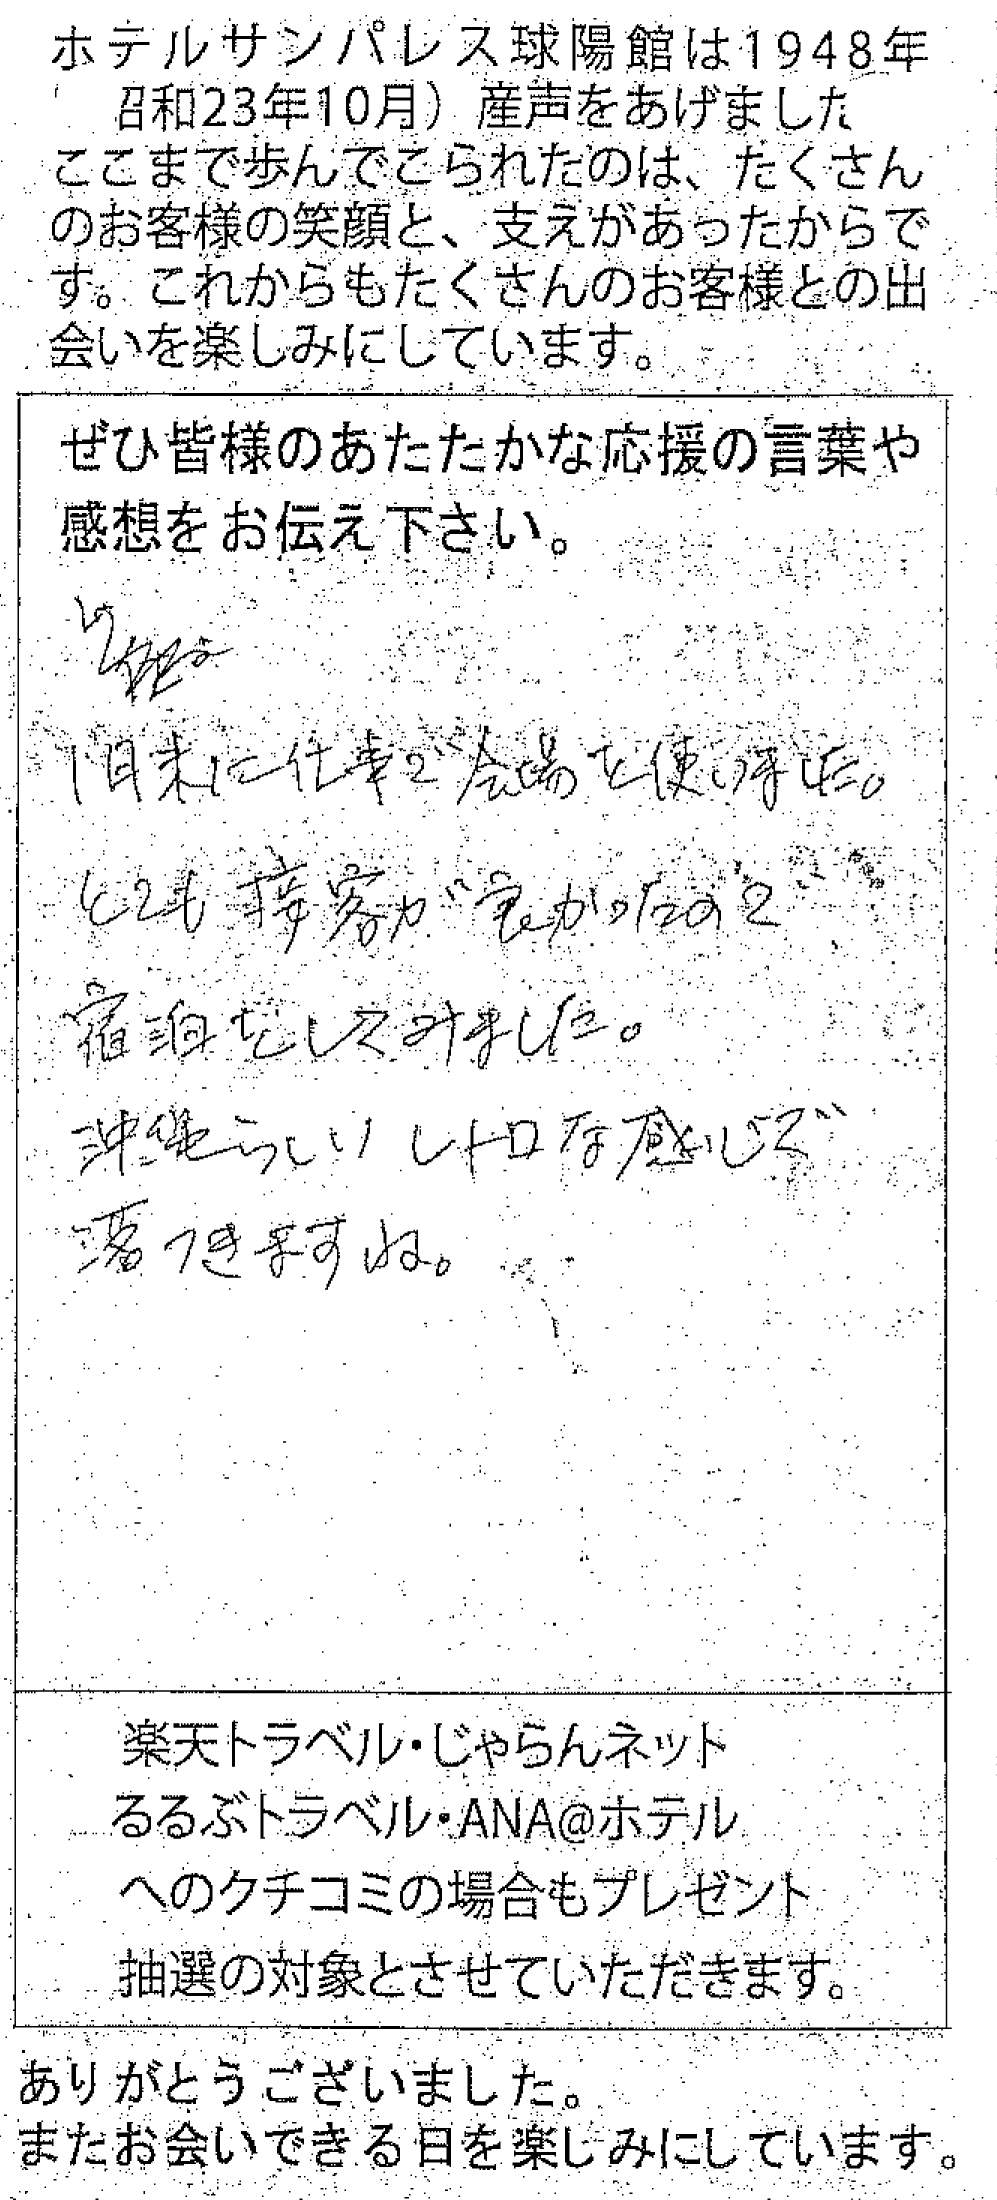 ホテルサンパレス球陽館は1948年
昭和23年10月）産声をあげました
ここまで歩んでこられたのは、たくさん
のお客様の笑顔と、支えがあったからで
す。これからもたくさんのお客様との出
会いを楽しみにしています。
ぜひ皆様のあたたかな応援の言葉や
感想をお伝え下さい。
1月末に仕事で会場を使いました。
とても接客が良かったので
宿泊をしてみました。
沖縄らしいレトロな感じで
落つきますね。
楽天トラベル・じゃらんネット
るるぶトラベル・ANA@ホテル
へのクチコミの場合もプレゼント
抽選の対象とさせていただきます。
ありがとうございました。
またお会いできる日を楽しみにしています。